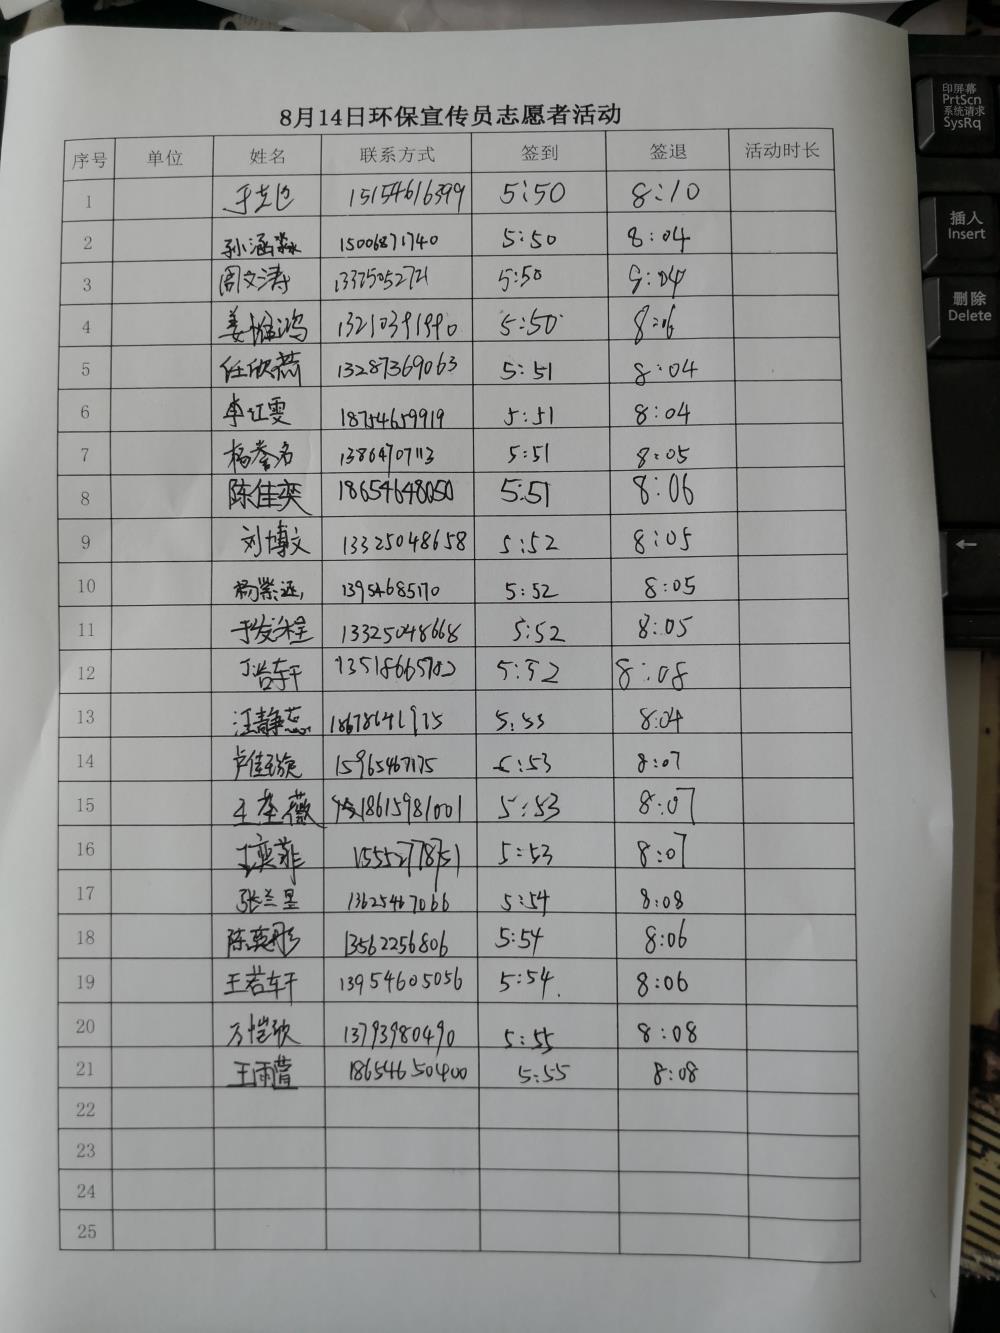 8月14日环保宣传员志愿者活动
序号 单位 姓名 联系方式 签到 签退 活动时长
1 15154616399 5:50 8:10
2 孙涵淼 15006871740 5:50 8:04
3 周文涛 13375052721 5:50 8:04
4 姜 鸿 13210391990 5:50 8:06
5 任欣燕 13287369063 5:51 8:04
6 李红雯 18754659919 5:51 8:04
7 杨 名 1386470713 5:51 8:05
8 陈佳奕 18654648050 5:51 8:06
9 刘博文 13325048658 5:52 8:05
10 杨紫涵 13954685170 5:52 8:05
11 于 程 13325048668 5:52 8:05
12 丁浩轩 13518665702 5:52 8:08
13 汪静蕊 18678641975 5:53 8:04
14 卢佳璇 15965467175 5:53 8:07
15 王 薇 18615981001 5:53 8:07
16 王奕菲 15552778751 5:53 8:07
17 张兰星 13625467066 5:54 8:08
18 陈奕彤 13562256806 5:54 8:06
19 王若轩 13954605056 5:54 8:06
20 万恺欣 13793980490 5:55 8:08
21 王雨萱 18654650400 5:55 8:08
22
23
24
25
印屏幕
PrtScn
系统请求
SysRq
插入
Insert
删除
Delete
←